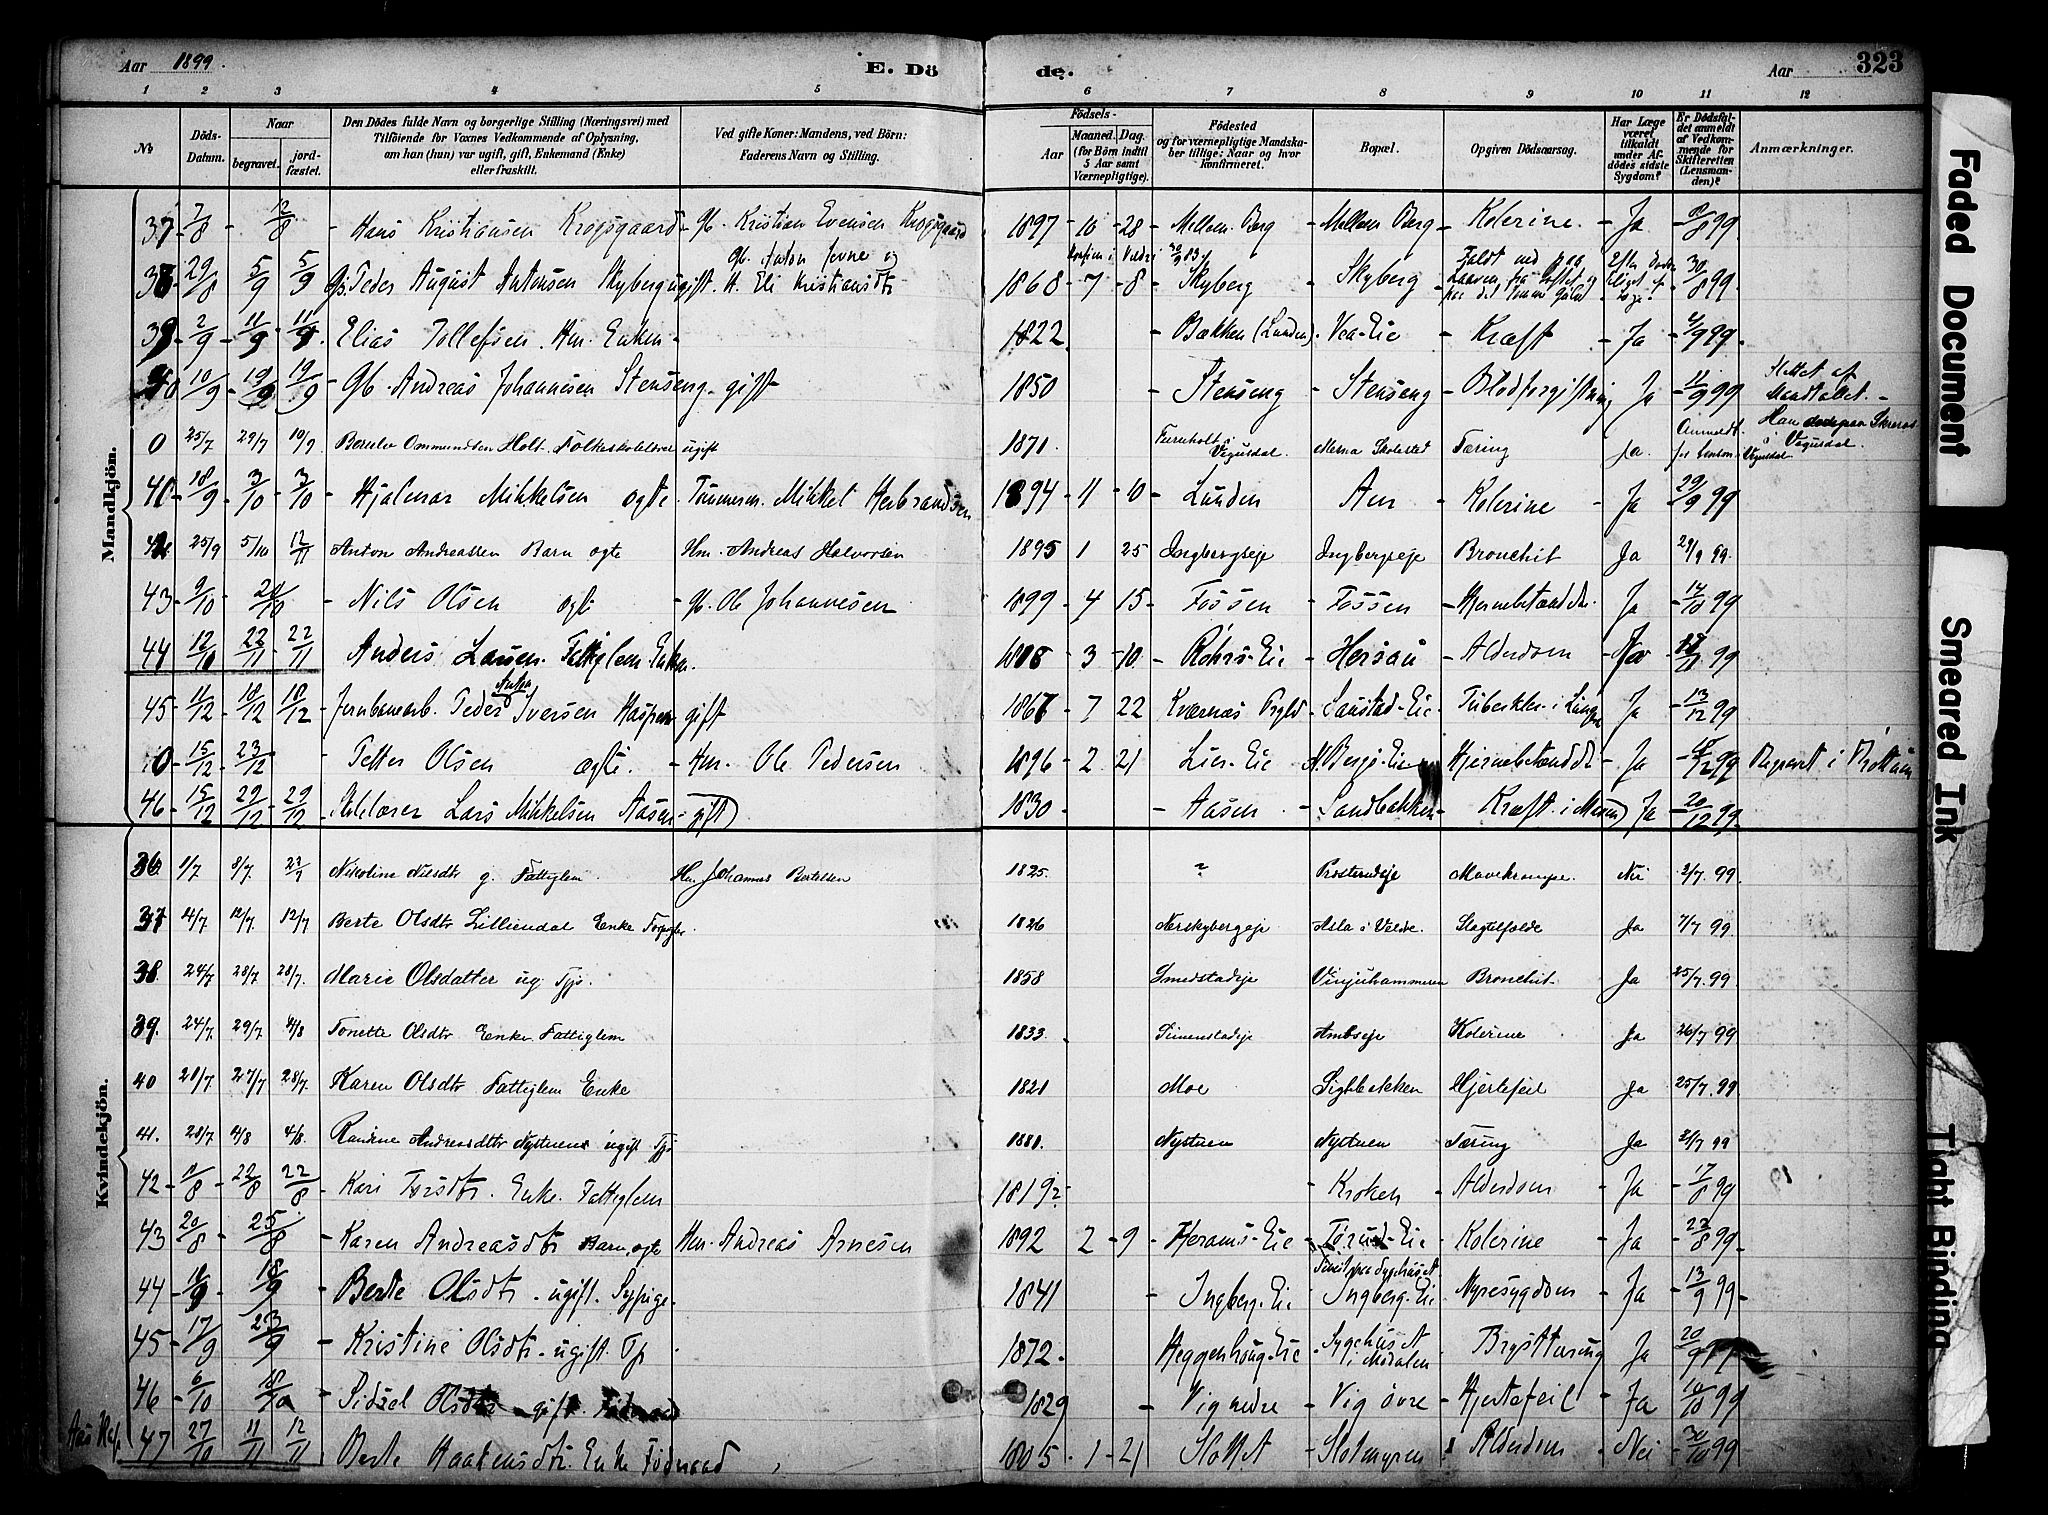 Aar 1899. E. Döde. Aar 323
1 2 3 4 5 6 7 8 9 10 11 12
No
Döds-Datum.
Naar
begravet.
jordfæstet.
Den Dödes fulde Navn og borgerlige Stilling (Næringsvei) med
Tilföiende for Voxnes Vedkommende af Oplysning,
om han (hun) var ugift, gift, Enkemand (Enke)
eller fraskilt.
Ved gifte Koner: Mandens, ved Börn:
Faderens Navn og Stilling.
Födsels-
Aar
Maaned. Dag.
(for Börn indtil
5 Aar samt
Værnepligtige).
Födested
og for værnepligtige Mandskaber tillige: Naar og hvor
konfirmeret.
Bopæl.
Opgiven Dödsaarsag.
Har Læge
været
tilkaldt
under Afdödes sidste
Sygdom?
Er Dödsfaldet anmeldt
af Vedkommende for
Skifteretten
(Lensmanden)?
Anmærkninger.
Mandkjön.
37 7/8 12/8 Hans Kristiansen Krogsgaard Gb. Kristian Evensen Krogsgaard 1897 10 28 Mellem Berg Mellem Berg Kolerine Ja 99
38 29/8 5/9 5/9 Gs. Peder August Antonsen Skyberg ugift. Gb. Anton Jevne og H. Eli Kristiansdtr 1868 7 8 Skyberg Skyberg 30/8 99
39 2/9 11/9 11/9 Elias Tollefsen. Hm. Enkem 1822 Bækken (Lunden) Vea-Eie Kræft Ja 4/9 99
40 10/9 19/9 19/9 Gb. Andreas Johannesen Stenseng gift 1850 Stenseng Stenseng Blodforgiftning Ja 11/9 99 Slettet af Mandtallet.
0 25/7 29/7 10/9 Ommundsen Holt Folkeskolelærer ugift 1871 Vegusdal Tæring Ja Vegusdal
41 18/9 3/10 3/10 Hjalmar Mikkelsen ægte Tømmerm. Mikkel Herbrandsen 1894 11 10 Lunden Aen Kolerine Ja 29/9 99
42 25/9 5/10 12/11 Anton Andreassen Barn ægte Hm. Andreas Halvorsen 1895 1 25 Ingbergseje Ingbergseje Bronchit Ja 29/9 99
43 9/10 20/10 Nils Olsen ægte Gb. Ole Johannesen 1899 4 15 Fossen Fossen Hjernebetændelse Ja 99
44 12/10 22/11 22/11 Anders Larsen Fattiglem Enkem. 3 10 Rohrs-Eie Alderdom 99
45 11/12 18/12 18/12 Jernbanearb. Peder Anton Iversen Haspen gift 1867 7 22 Saustad-Eie Tuberkler i Lunge Ja 13/12 99
0 15/12 23/12 Petter Olsen ægte Hm. Ole Pedersen 1896 2 21 Lier-Eie N. Bergs-Eie Hjernebetændelse Ja 99 Begravet i
46 15/12 29/12 29/12 Skolelærer Lars Mikkelsen Aasen gift 1830 Aasen Sandbakken Kræft i Maven Ja 20/12 99
Kvindekjön.
36 1/7 8/7 23/7 Nikoline Nilsdtr g. Fattiglem Hm. Johannes Bertelsen 1825 ? Prosterudseje Mavekrampe Nei 2/7 99.
37 4/7 12/7 12/7 Berte Olsdtr Lilliendal Enke 1826 Nerskybergseje Slagtilfælde Ja 7/7 99
38 24/7 28/7 28/7 Marie Olsdatter ug. Tjs. 1858 Smedstadseje Vingerhammeren Bronchit Ja 25/7 99
39. 24/7 29/7 4/8 Tonette Olsdtr Enke Fattiglem 1833 Simenstadseje Ambseje Kolerine Ja 26/7 99
40 20/7 27/7 28/7 Karen Olsdtr Fattiglem Enke 1821 Moe Sigtbakken Hjertefeil Ja 25/7 99
41. 28/7 4/8 4/8 Randine Andreasdtr Nystuen ugift Tjs 1881 Nystuen Nystuen Tæring Ja 99
42 11/8 22/8 22/8 Kari Torsdtr. Enke. Fattiglem 1819? Kroken Alderdom Ja 17/8 99
43 20/8 25/8 Karen Andreasdtr Barn, ægte Hm. Andreas Arnesen 1892 2 9 Herams-Eie Torud-Eie Kolerine Ja 22/8 99
44 10/9 18/9 Berte Olsdtr. ugift. Sypige 1841 Ingberg-Eie Ingberg-Eie Nyresygdom Ja 13/9 99
45 17/9 23/9 Kristine Olsdtr. ugift. Tj 1872 Heggenhoug-Eie Sygehuset i Mesdalen Brysttæring Ja 20/9 99
46 6/10 18/10 Sidsel Olsdtr gift 1829 Vig nedre Vig øvre Hjertefeil Ja 10/10 99
47 27/10 11/11 12/11 Berte Haakensdtr. Enke Föderaad 1805 1 21 Slottet Slotmyren Alderdom Nei 30/10 99
Faded Document
Smeared Ink
Tight Binding